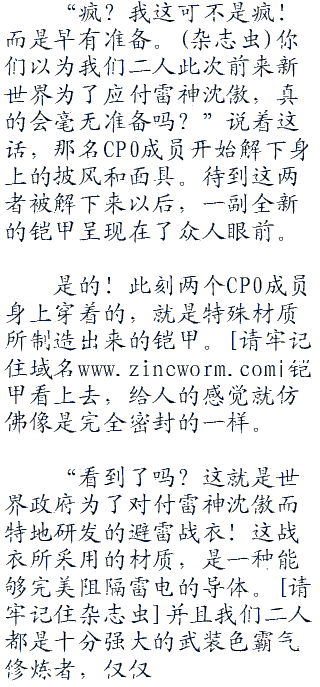 “疯？我这可不是疯！
而是早有准备。(杂志虫)你
们以为我们二人此次前来新
世界为了应付雷神沈傲，真
的会毫无准备吗？”说着这
话，那名CP0成员开始解下身
上的披风和面具。待到这两
者被解下来以后，一副全新
的铠甲呈现在了众人眼前。
是的！此刻两个CP0成员
身上穿着的，就是特殊材质
所制造出来的铠甲。[请牢记
住域名www.zineworm.com|铠
甲看上去，给人的感觉就仿
佛像是完全密封的一样。
“看到了吗？这就是世
界政府为了对付雷神沈傲而
特地研发的避雷战衣！这战
衣所采用的材质，是一种能
够完美阻隔雷电的导体。[请
牢记住杂志虫]并且我们二人
都是十分强大的武装色霸气
修炼者，仅仅